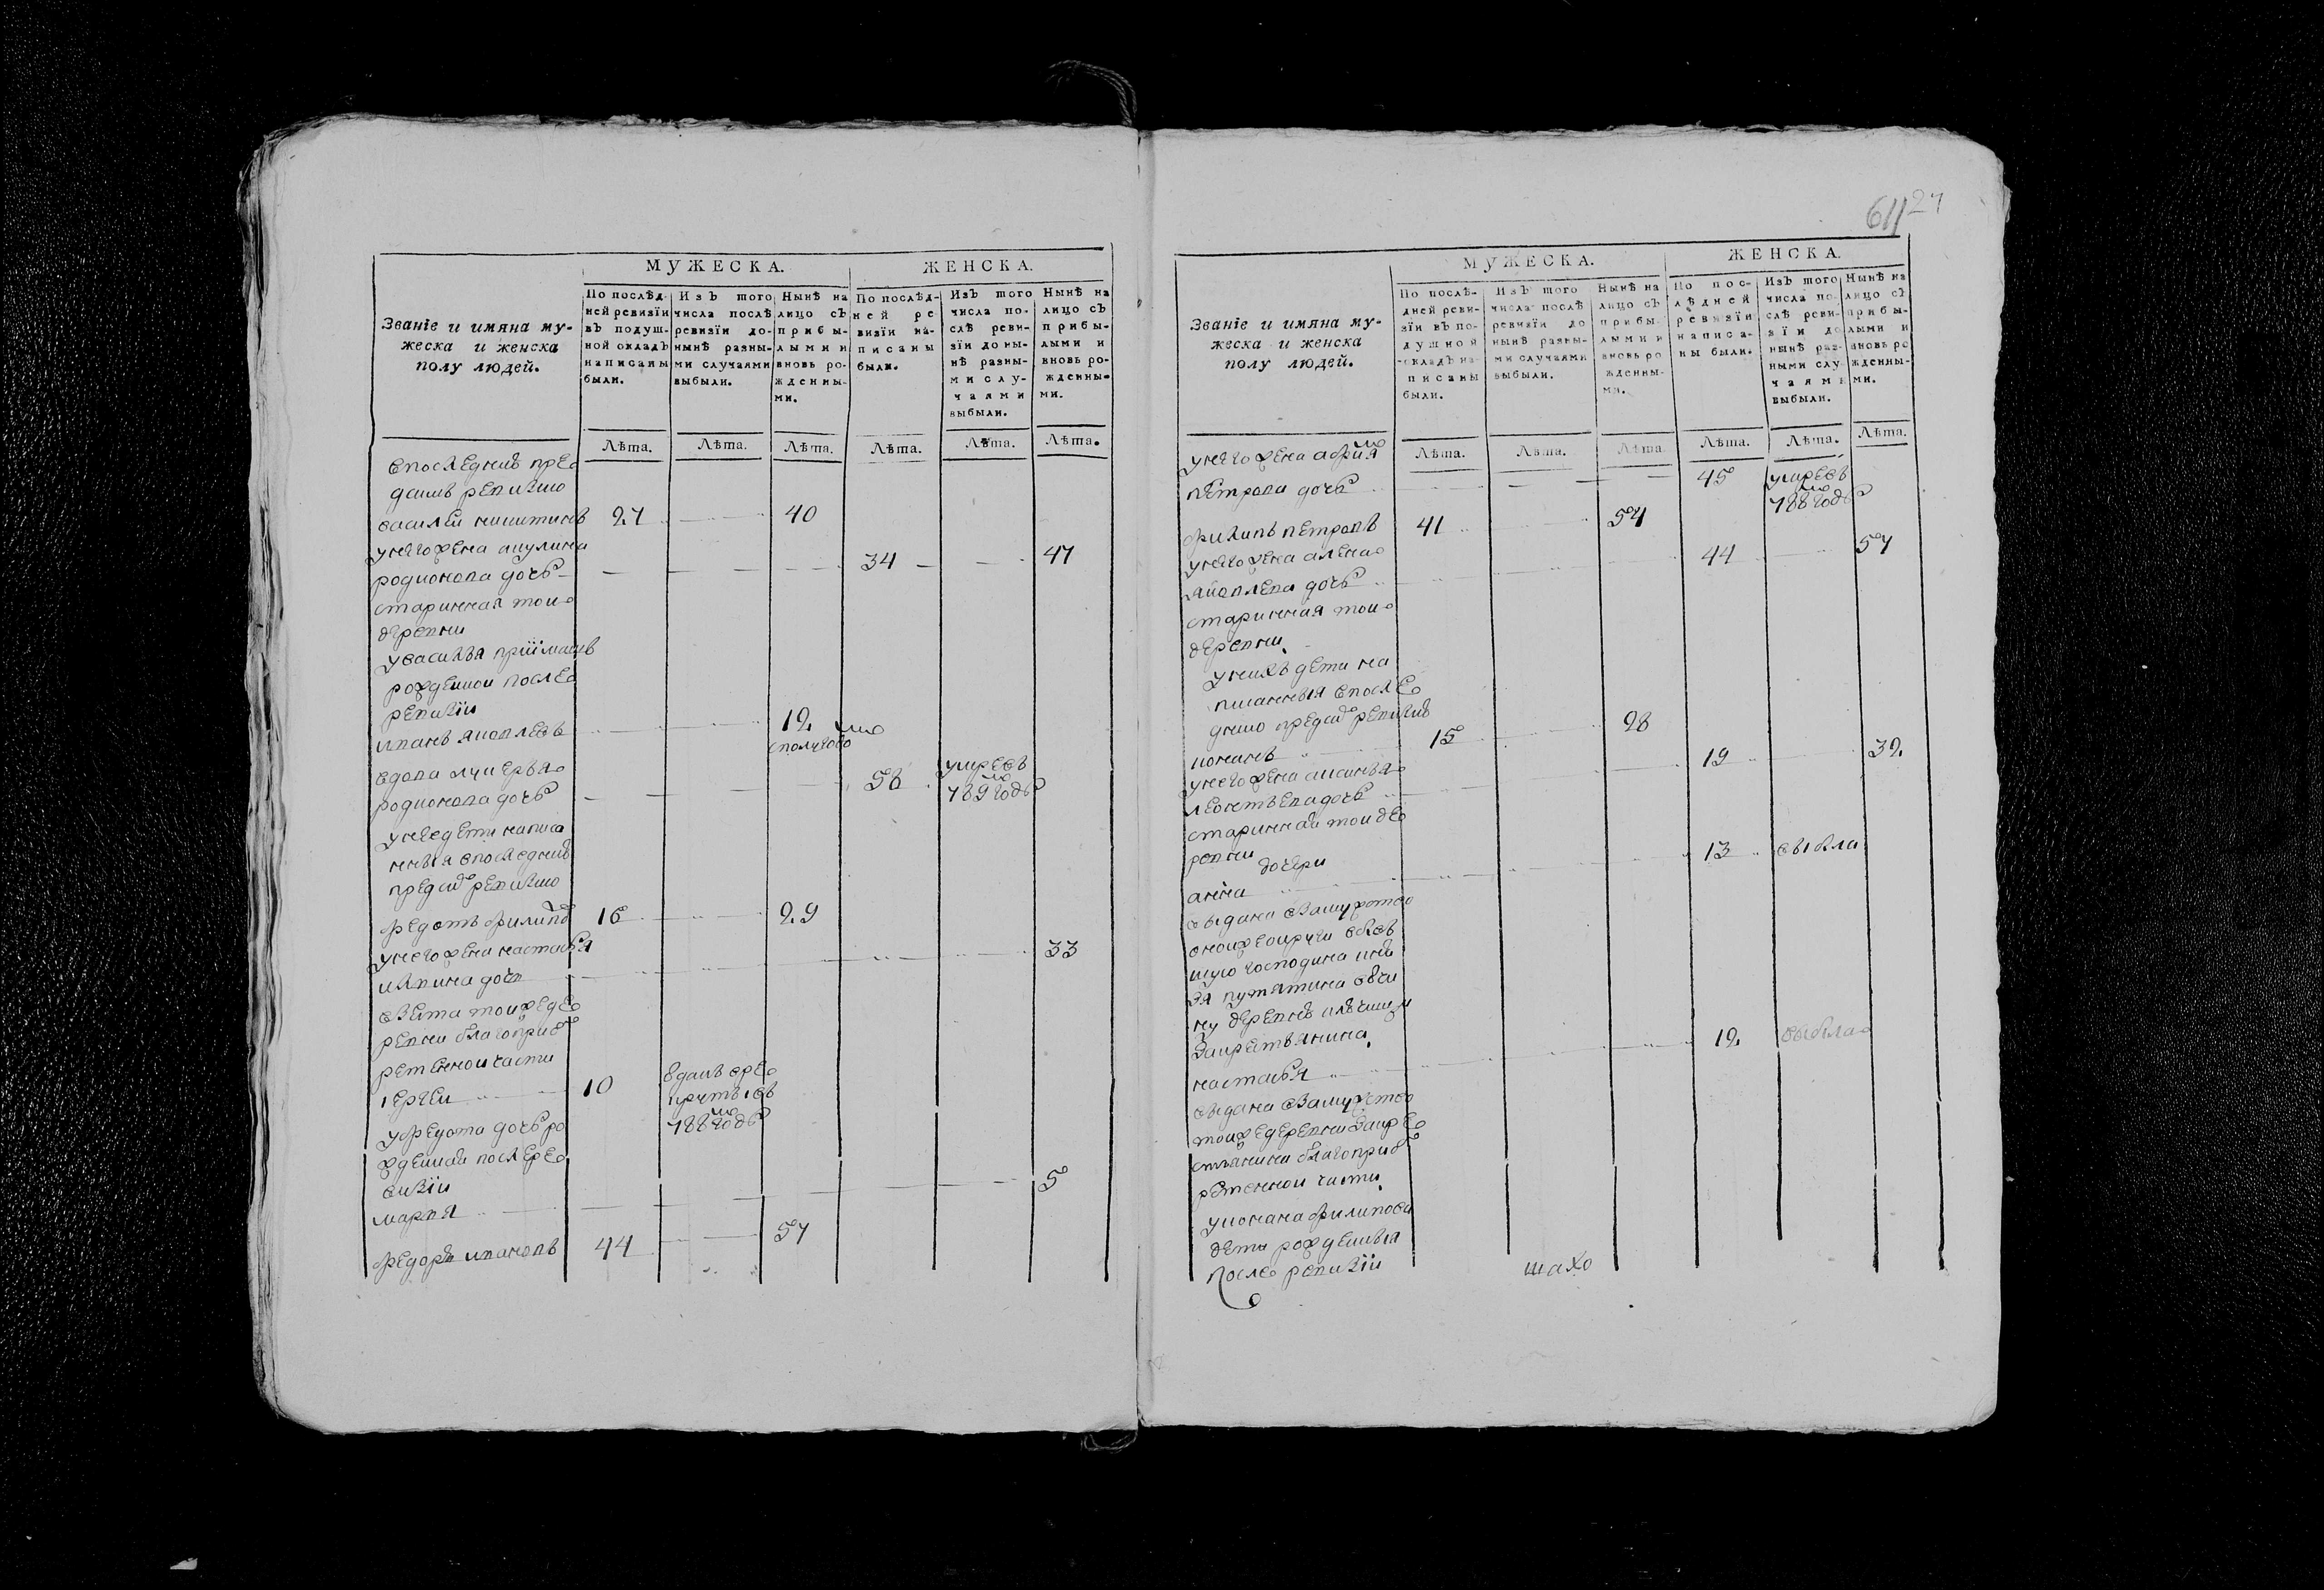 МУЖЕСКА.
ЖЕНСКА.
Званіе и имяна му-
жеска и женска
полу людей.
По послѣд-
ней ревизіи
въ подуш-
ной окладъ
написаны
были.
Изъ того
числа послѣ
ревизіи до-
нынѣ разны-
ми случаями
выбыли.
Нынѣ на
лицо съ
прибы-
лыми и
вновь ро-
жденны-
ми.
По послѣд-
ней ре
визіи на-
писаны
были.
Изъ того
числа по-
слѣ реви-
зіи до ны-
нѣ разны-
ми слу-
чаями
выбыли.
Нынѣ на
лицо съ
прибы-
лыми и
вновь ро-
жденны-
ми.
Лѣта. Лѣта. Лѣта. Лѣта. Лѣта. Лѣта.
впоследней пре
ревизию
василей никитинъ 27 40
унего жена акулина
родионова дочь 34 47
старинная тои
деревни
увасилья
рожденнои после
ревизіи
иванъ яковлевъ 12
сполугодо
вдова лукерья
родионова дочь 58 умре въ
789 годѣ
унее дети написа
нныя впоследней
ревизию
федотъ филипо 16 29
унего жена настасья 33
дочь
взята тоиже де
ревни благоприоб
ретеннои части
сергеи 10 вданъ вре
круты въ
788 годѣ
уфедота дочь ро
жденная после ре
визіи
марья 5
федоръ ивановъ 44 57
611 27
МУЖЕСКА.
ЖЕНСКА.
Званіе и имяна му-
жеска и женска
полу людей.
По послѣ-
дней реви-
зіи въ по-
душной
окладъ на-
писаны
были.
Изъ того
числа послѣ
ревизіи до
нынѣ разны-
ми случаями
выбыли.
Нынѣ на
лицо съ
прибы-
лыми и
вновь ро
жденны-
ми.
По пос-
лѣдней
ревизіи
написа-
ны были.
Изъ того
числа по-
слѣ реви-
зіи до
нынѣ раз-
ными слу-
чаями
выбыли.
Нынѣ на
лицо съ
прибы-
лыми и
вновь ро
жденны-
ми.
Лѣта. Лѣта. Лѣта. Лѣта. Лѣта. Лѣта.
унего жена
петрова дочь 45 умре въ
788 годѣ
филипъ петровъ 41 54
унего жена алена 44 57
яковлева дочь
старинная тои
деревни
унихъ дети на
писанныя впосле
днию ревизию
кононъ 15 28
унего жена аксинья 19 32
леонтьева дочь
старинная тои де
ревни
дочери
анна 13 выбыла
выдана взамужство
господина
деревне
настасья 12 выбыла
выдана взамужство
тоиже деревни за кре
стьянина благоприоб
ретеннои части
уконона филипова
дети рожденныя
после ревизіи